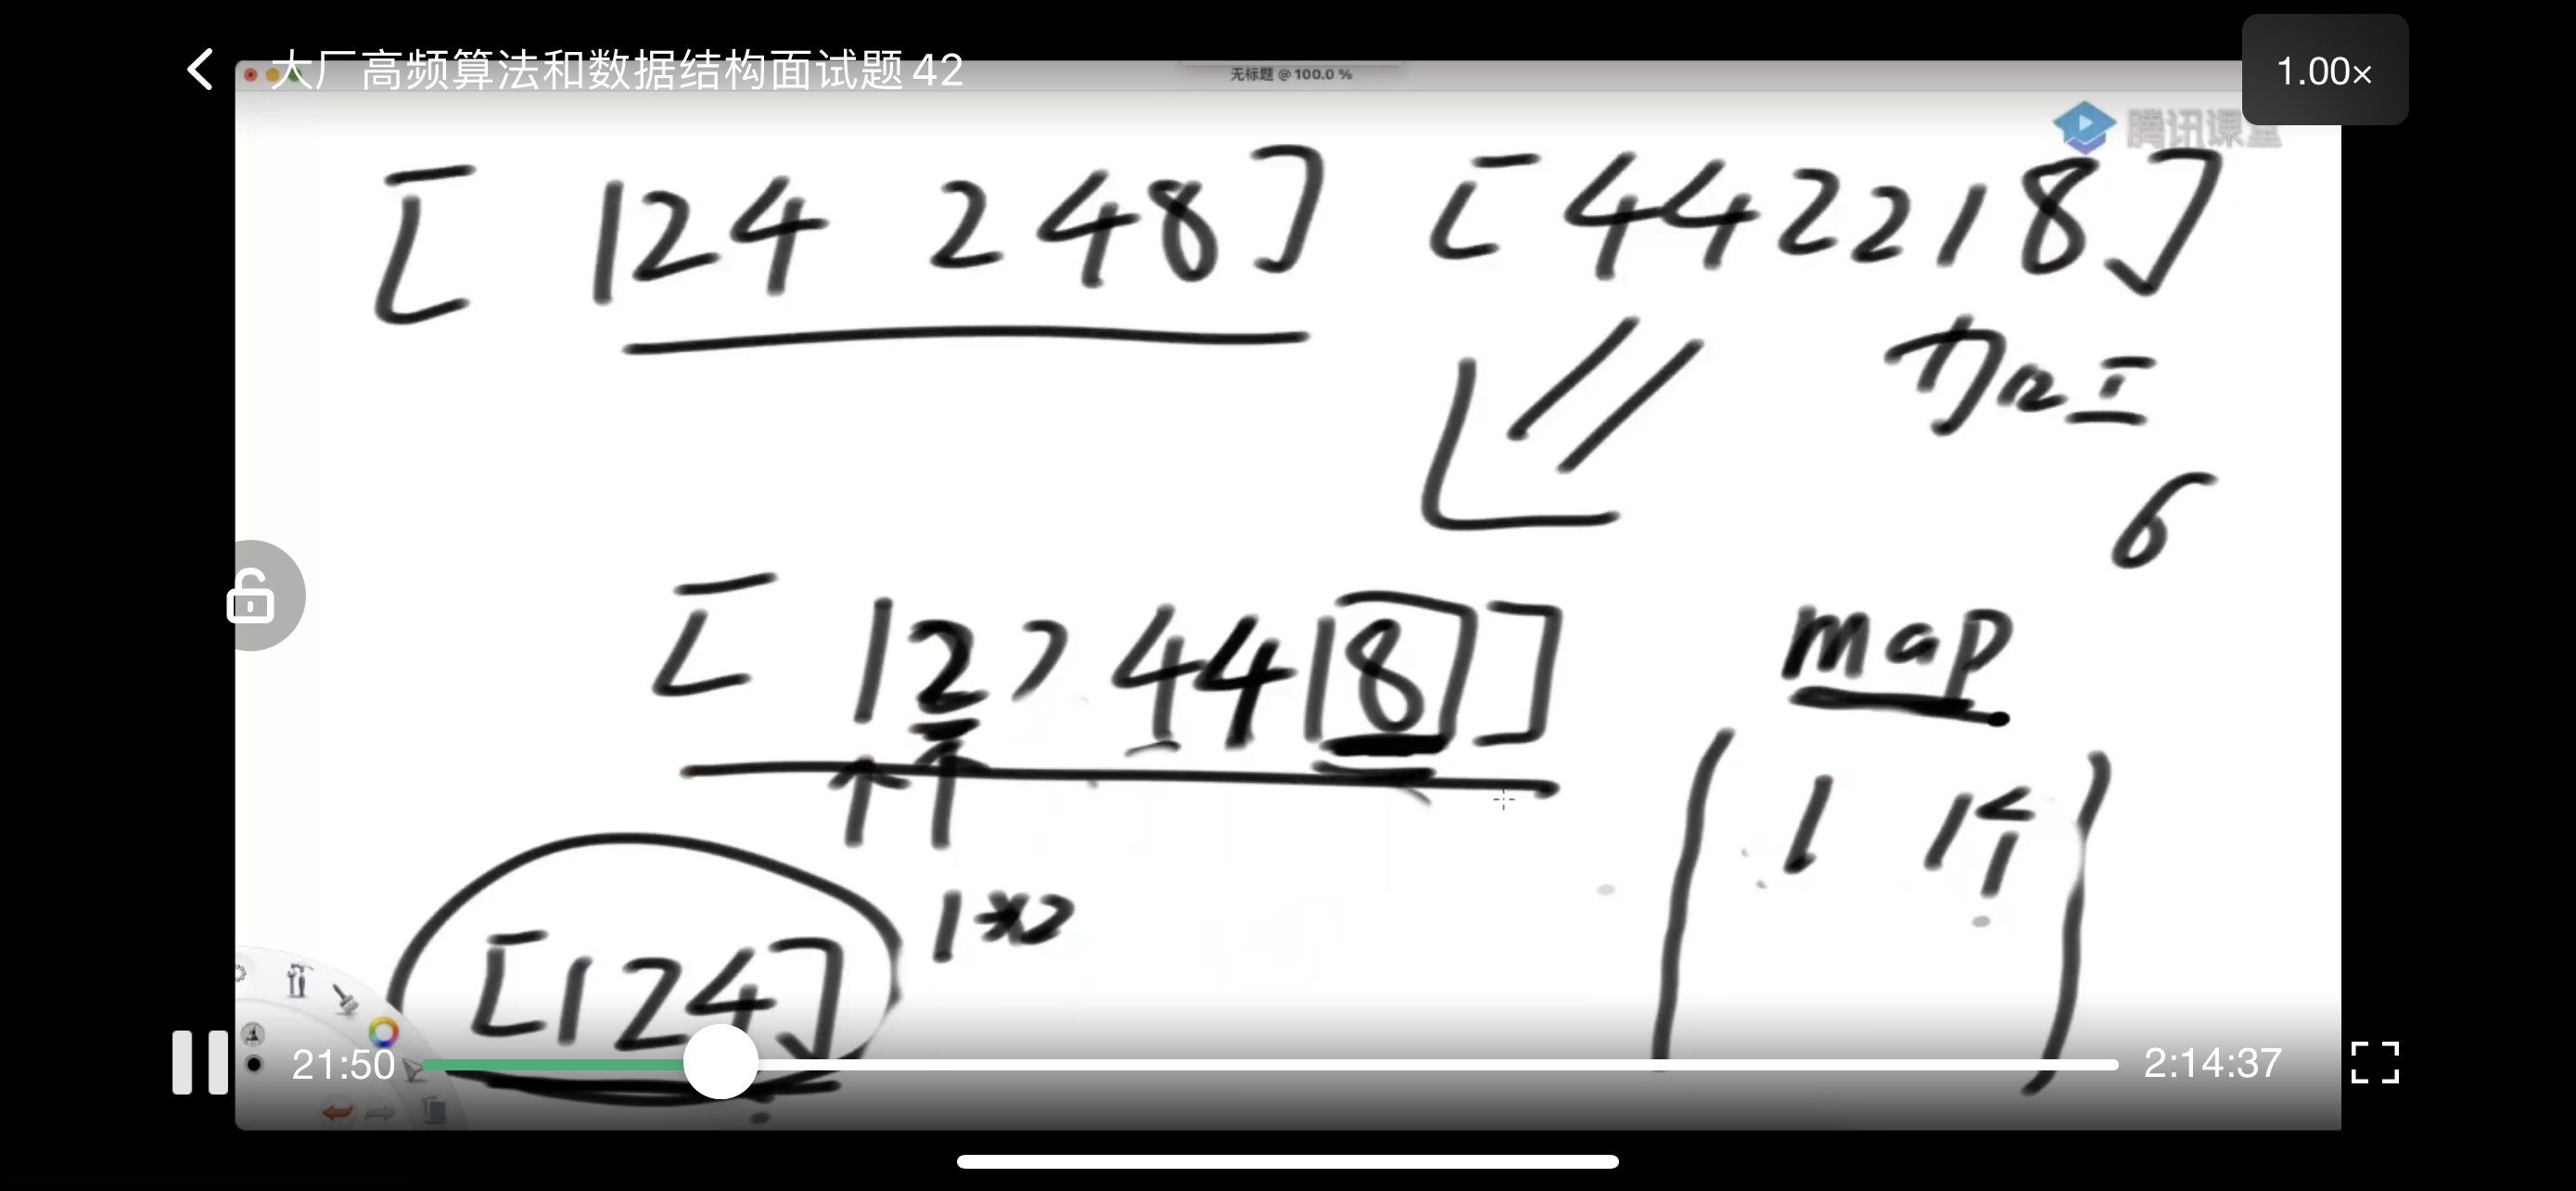 大厂高频算法和数据结构面试题42
1.00×
无标题 @ 100.0 %
腾讯课堂
[ 124 248] [442218]
加工
6
[ 122 44 18]]
map
1 1
1*2
[124]
21:50
2:14:37